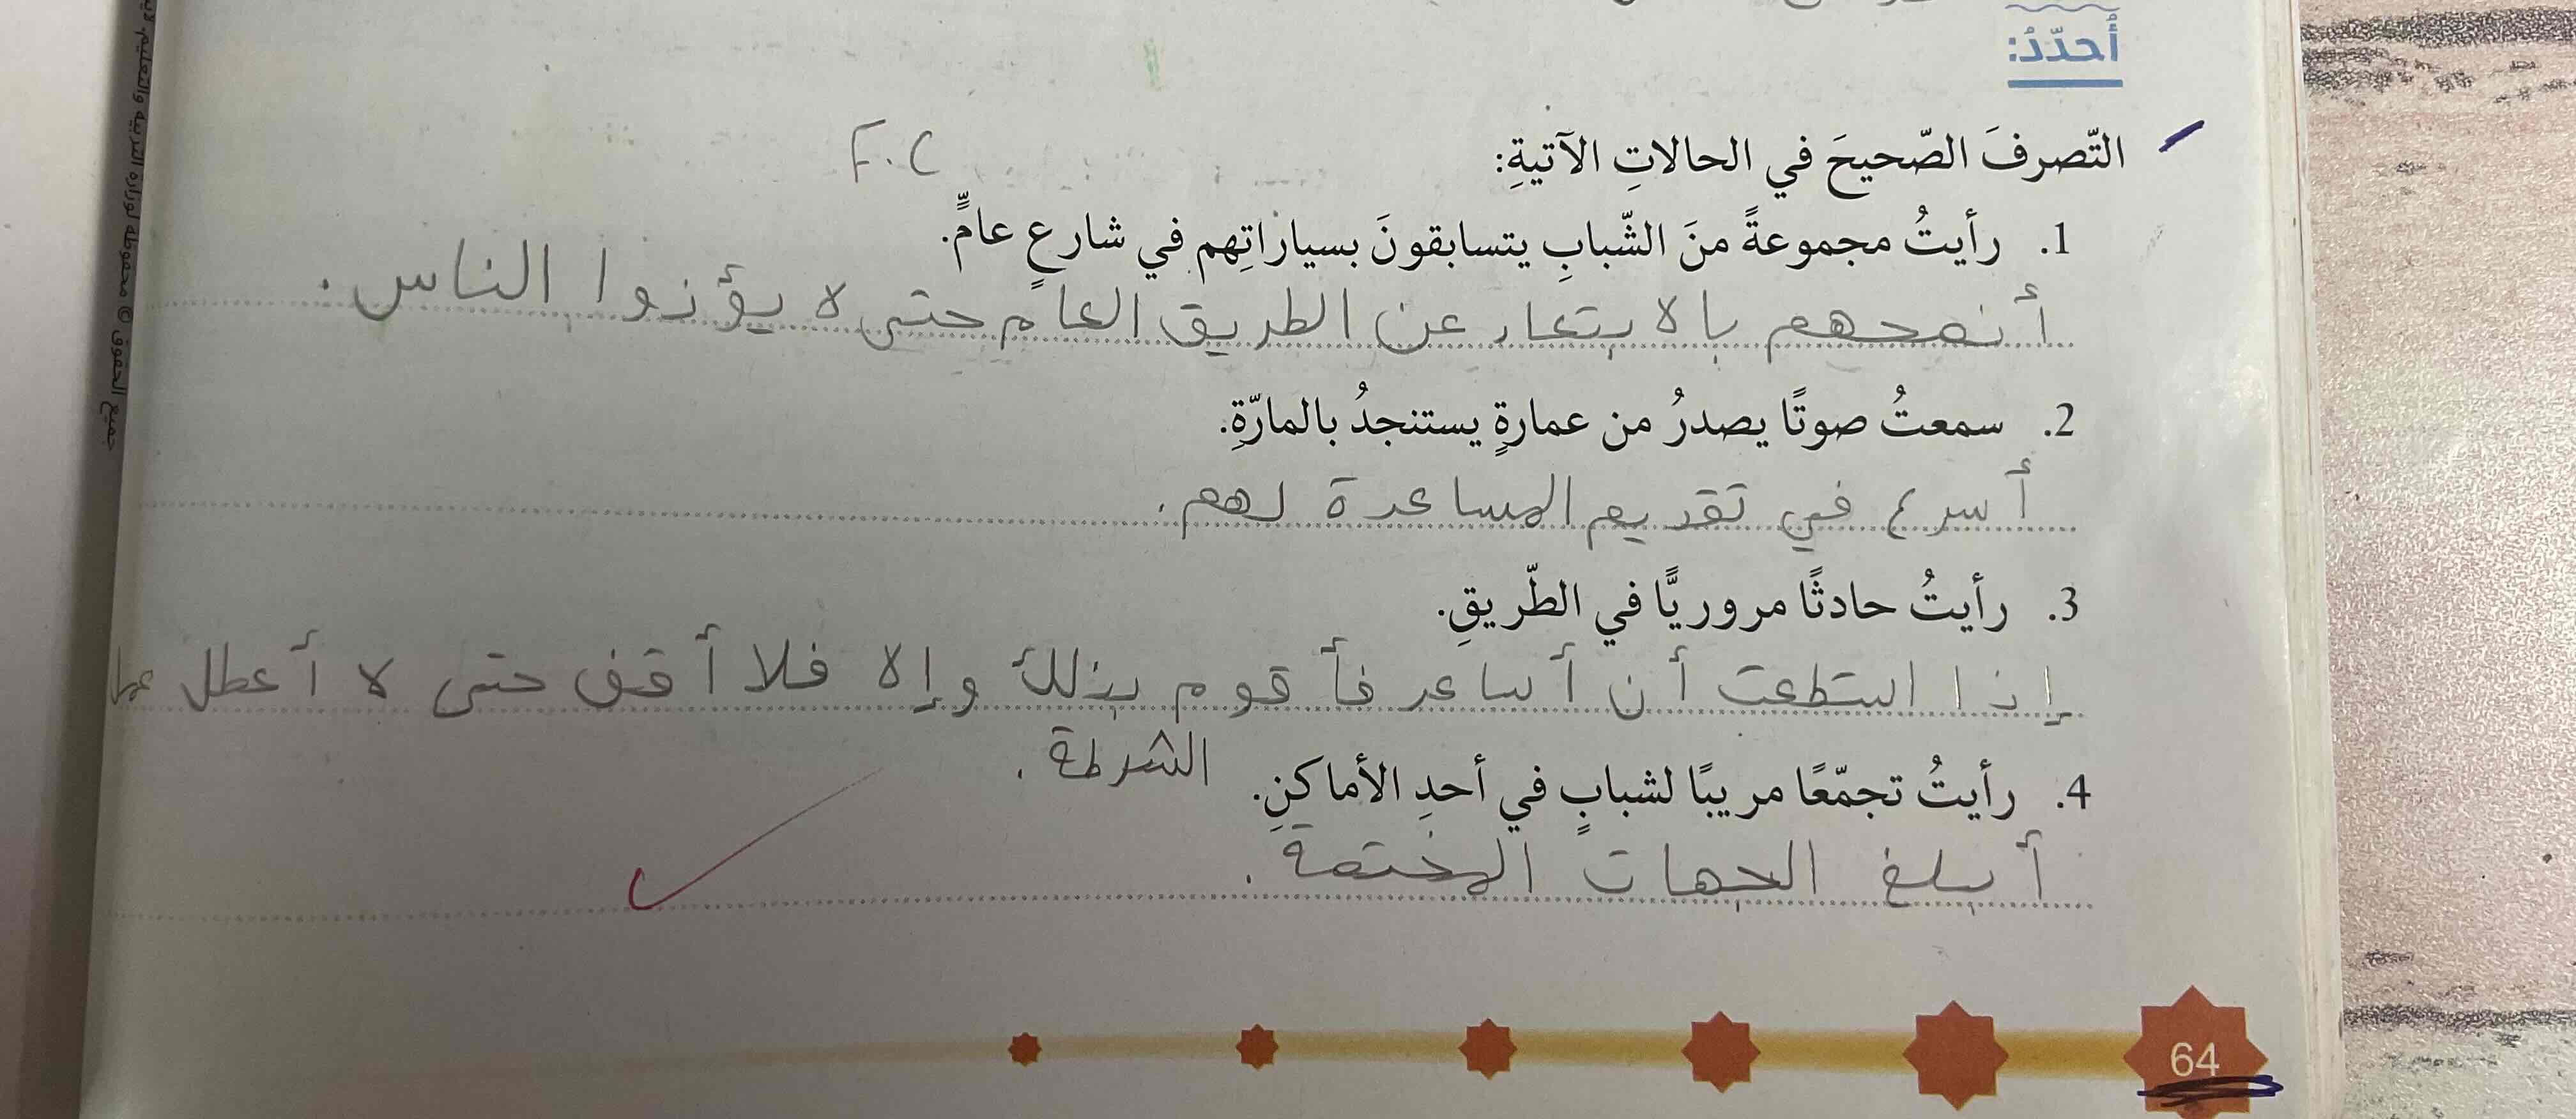 أُحدّدُ:
التّصرفَ الصّحيحَ في الحالاتِ الآتيةِ:
F.C
1. رأيتُ مجموعةً منَ الشّبابِ يتسابقونَ بسياراتِهم في شارعٍ عامٍّ.
أنصحهم بالابتعاد عن الطريق العام حتى لا يؤذوا الناس.
2. سمعتُ صوتًا يصدرُ من عمارةٍ يستنجدُ بالمارّةِ.
أسرع في تقديم المساعدة لهم.
3. رأيتُ حادثًا مروريًّا في الطّريقِ.
إذا استطعت أن أساعد فأقوم بذلك وإلا فلا أقف حتى لا أعطل عمل
الشرطة.
4. رأيتُ تجمّعًا مريبًا لشبابٍ في أحدِ الأماكنِ.
أبلغ الجهات المختصة.
64
جميع الحقوق © محفوظة لوزارة التربية والتعليم